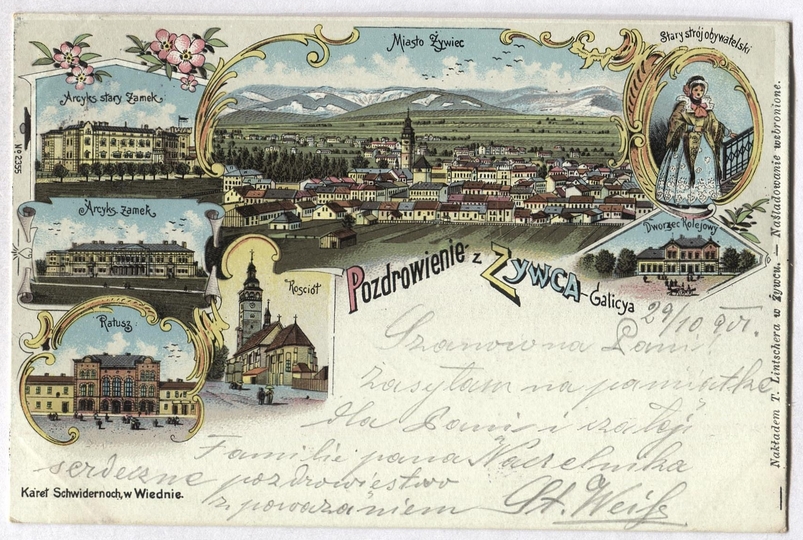 Miasto Żywiec
Stary strój obywatelski
Arcyks. stary Zamek.
Arcyks. Zamek.
Ratusz
Kosciół
Dworzec Kolejowy
Pozdrowienie z Żywca - Galicya
29/10
Szanowna Pani
Zasyłam na pamiątkę
dla Pani i całej
Familie pana Naczelnika
serdeczne pozdrowiestwo
z powazaniem St. Weiß
Karel Schwidernoch, w Wiednie.
No 2355
Nakładem T. Lintschera w Żywcu. — Naśladowanie wzbronione.